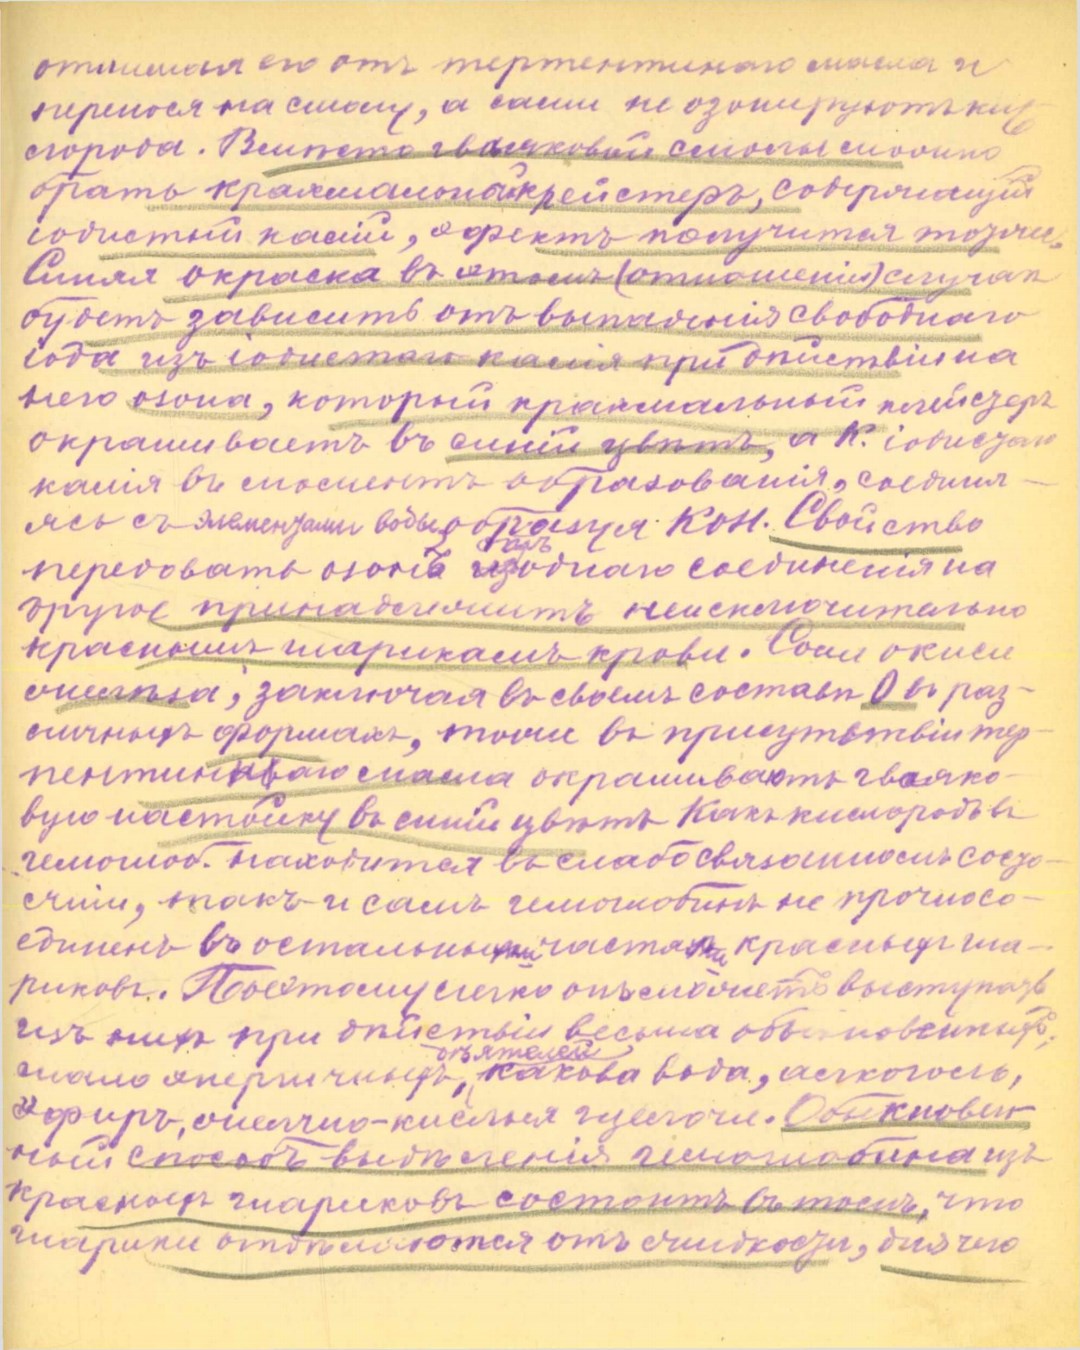 отнимая его отъ терпентиннаго масла и
перенося на смолу, а сами не озонируютъ кис-
лорода. Вмѣсто гваяковой смолы можно
брать крахмальный клейстеръ, содержащій
іодистый калій, эфектъ получится тотже.
Синяя окраска въ этомъ (отношеніи) случаѣ
будетъ зависить отъ выпаденія свободнаго
іода изъ іодистаго калія при дѣйствіи на
него озона, который крахмальный клейстеръ
окрашиваетъ въ синій цвѣтъ, а К. іодистаго
калія въ моментъ образованія, соединя-
ясь съ элементами воды образуя КОН. Свойство
передовать озонъ отъ изъ однаго соединенія на
другое принадлежитъ неисключительно
краснымъ шарикамъ крови. Соли окиси
желѣза, заключая въ своемъ составѣ О въ раз-
личныхъ формахъ, тоже въ присутствіи тер-
пентиноваго масла окрашиваютъ гваяко-
вую настойку въ синій цвѣтъ. Какъ кислородъ въ
гемоглоб. находится въ слабосвязанномъ состо-
яніи, такъ и самъ гемоглобинъ не прочносо-
единенъ въ остальными частями красныхъ ша-
риковъ. Поэтому легко онъ можетъ выступать
изъ нихъ при дѣйствіи весьма обыкновенныхъ,
мало энергичныхъ дѣятелей, какова вода, алкоголь,
эфиръ, желчно-кислыя щелочи. Обыкновен-
ный способъ выдѣленія гемоглобина изъ
красныхъ шариковъ состоитъ въ томъ, что
шарики отдѣляются отъ жидкости, для чего